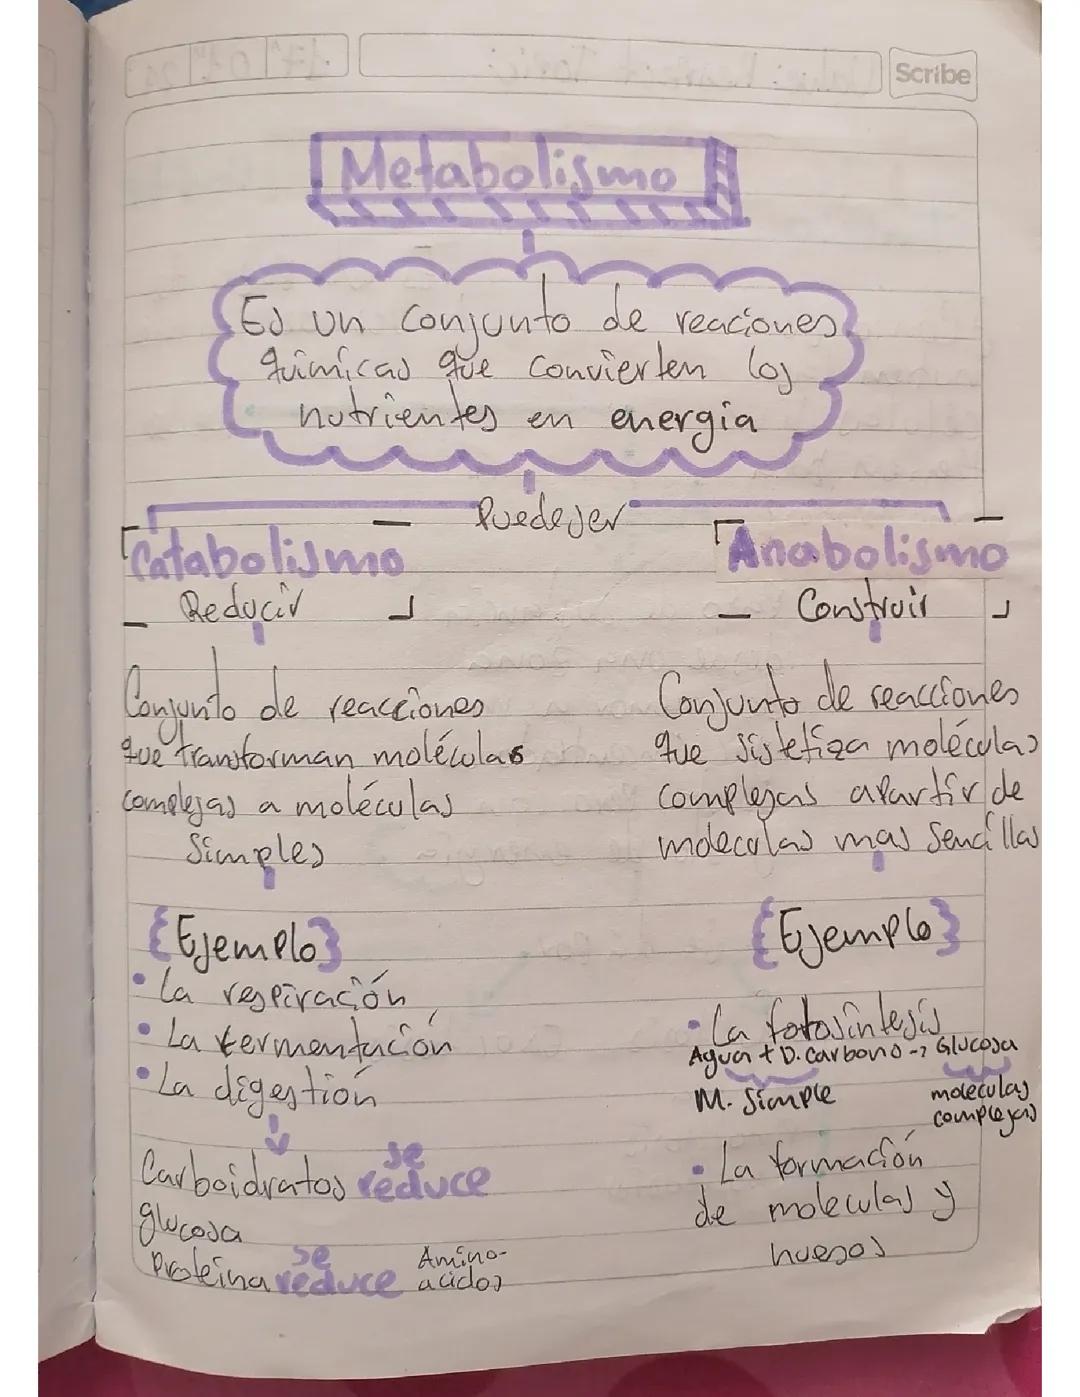 Scribe
Metabolismo
Es un conjunto de reaciones
químicas que convierten los
nutrientes en energía
Puede ser
Catabolismo
Reducir
Conjunto de reacciones
que transforman moléculas
complejas a moléculas
Simples
{Ejemplo}
• La respiración
• La fermentación
• La digestión
Carboidratos se reduce
glucosa
Proteína se reduce Amino-
acidos
Anabolismo
Construir
Conjunto de reacciones
que sistetiza moléculas
complejas apartir de
moleculas mas sencillas
{Ejemplo}
• La fotosíntesis
Agua + D. carbono -> Glucosa
M. Simple
moleculas
complejas
• La formación
de moleculas y
huesos